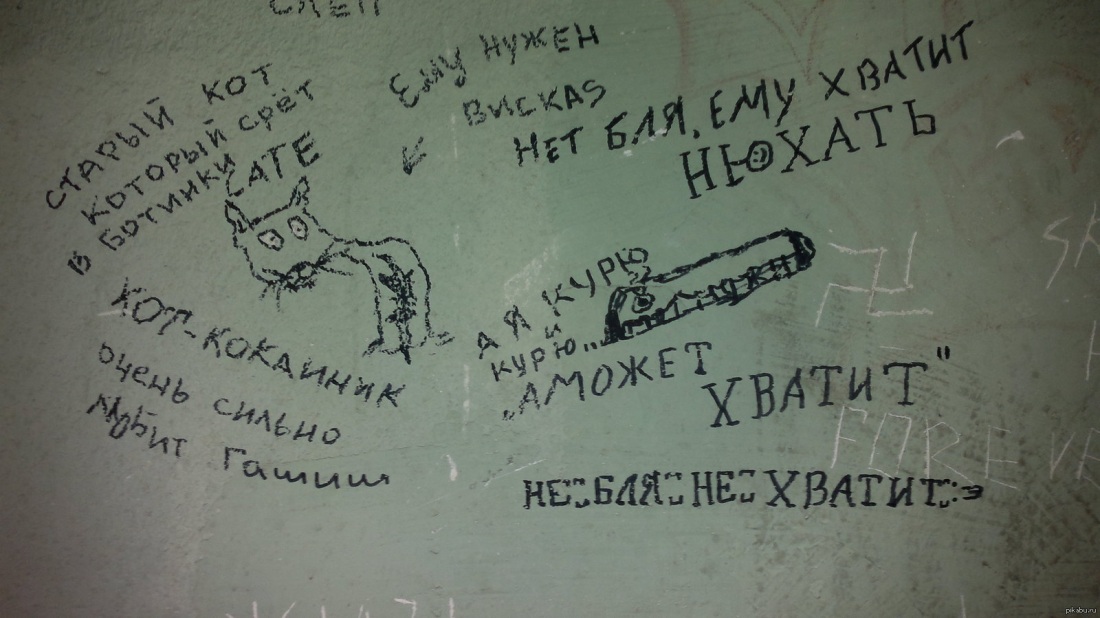 СТАРЫЙ КОТ
КОТОРЫЙ СРЁТ
В БОТИНКИ
ЕМУ НУЖЕН
ВИСКАS
НЕТ БЛЯ, ЕМУ ХВАТИТ
НЮХАТЬ
КОТ-КОКАИНИК
очень сильно
любит Гашиш
А Я КУРЮ
И
КУРЮ...
"А МОЖЕТ
ХВАТИТ"
НЕ БЛЯ НЕ ХВАТИТ :э
FOREVER
pikabu.ru